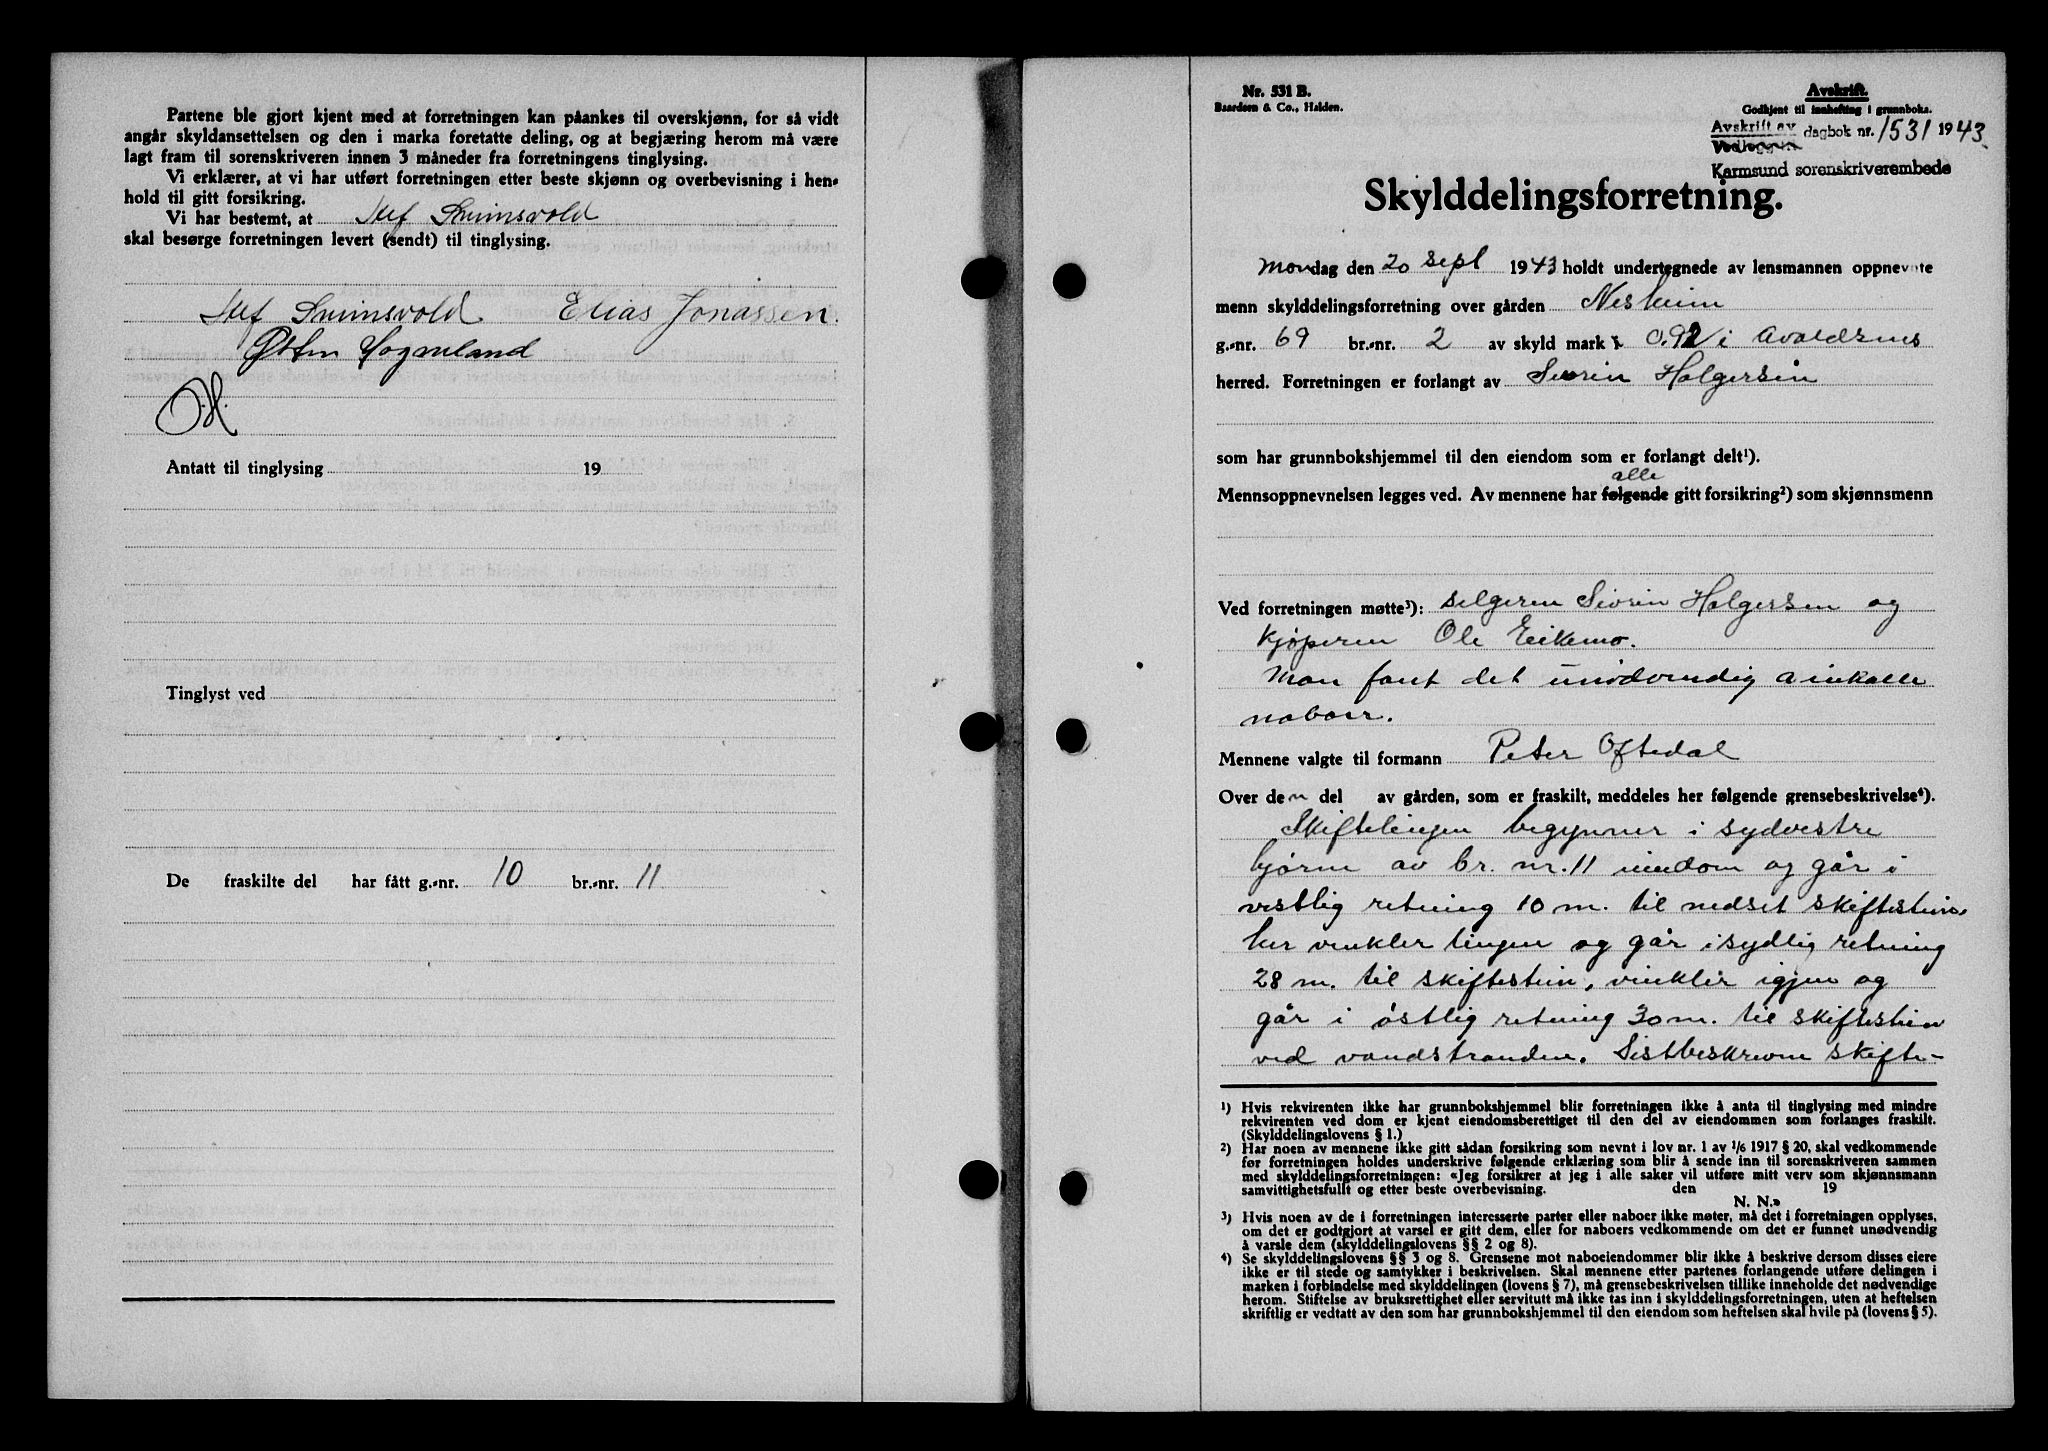 Partene ble gjort kjent med at forretningen kan påankes til overskjønn, for så vidt
angår skyldansettelsen og den i marka foretatte deling, og at begjæring herom må være
lagt fram til sorenskriveren innen 3 måneder fra forretningens tinglysing.
Vi erklærer, at vi har utført forretningen etter beste skjønn og overbevisning i hen-
hold til gitt forsikring.
Vi har bestemt, at
skal besørge forretningen levert (sendt) til tinglysing.
Elias Jonassen.
Antatt til tinglysing 19
Tinglyst ved
De fraskilte del har fått g.-nr. 10 br.-nr. 11
Nr. 531 B.
Baardsen & Co., Halden.
Avskrift.
Godkjent til innhefting i grunnboka.
Avskrift av
Vedlegg til
dagbok nr. 1531 1943.
Karmsund sorenskriverembede
Skylddelingsforretning.
Mondag den 20 sept 1943 holdt undertegnede av lensmannen oppnevnte
menn skylddelingsforretning over gården Nesheim
g.-nr. 69 br.-nr. 2 av skyld mark i Avaldsnes
herred. Forretningen er forlangt av Sivrin Holgersen
som har grunnbokshjemmel til den eiendom som er forlangt delt¹).
alle
Mennsoppnevnelsen legges ved. Av mennene har følgende gitt forsikring²) som skjønnsmenn
Ved forretningen møtte³): selgeren Sivrin Holgersen og
kjøperen Ole Eikemo.
Man fant det unødvendig a inkalle
naboer.
Mennene valgte til formann Peter Oftedal
Over den del av gården, som er fraskilt, meddeles her følgende grensebeskrivelse⁴).
Skiftelinjen begynner i sydvestre
hjørne av br. nr. 11 eiendom og går i
vestlig retning 10 m. til nedset skiftestein,
her vinkler linjen og går i sydlig retning
28 m. til skiftestein, vinkler igjen og
går i østlig retning 30 m. til skiftestein
ved vandstranden. Sistbeskrevne skifte-
¹) Hvis rekvirenten ikke har grunnbokshjemmel blir forretningen ikke å anta til tinglysing med mindre
rekvirenten ved dom er kjent eiendomsberettiget til den del av eiendommen som forlanges fraskilt.
(Skylddelingslovens § 1.)
²) Har noen av mennene ikke gitt sådan forsikring som nevnt i lov nr. 1 av 1/6 1917 § 20, skal vedkommende
før forretningen holdes underskrive følgende erklæring som blir å sende inn til sorenskriveren sammen
med skylddelingsforretningen: «Jeg forsikrer at jeg i alle saker vil utføre mitt verv som skjønnsmann
samvittighetsfullt og etter beste overbevisning. den 19
N. N.»
³) Hvis noen av de i forretningen interesserte parter eller naboer ikke møter, må det i forretningen opplyses,
om det er godtgjort at varsel er gitt dem, eller for naboers vedkommende om det er funnet unødvendig
å varsle dem (skylddelingslovens §§ 2 og 8).
⁴) Se skylddelingslovens §§ 3 og 8. Grensene mot naboeiendommer blir ikke å beskrive dersom disses eiere
ikke er til stede og samtykker i beskrivelsen. Skal mennene etter partenes forlangende utføre delingen i
marken i forbindelse med skylddelingen (lovens § 7), må grensebeskrivelsen tillike inneholde det nødvendige
herom. Stiftelse av bruksrettighet eller servitutt må ikke tas inn i skylddelingsforretningen, uten at heftelsen
skriftlig er vedtatt av den som har grunnbokshjemmel til den eiendom som heftelsen skal hvile på (lovens § 5).